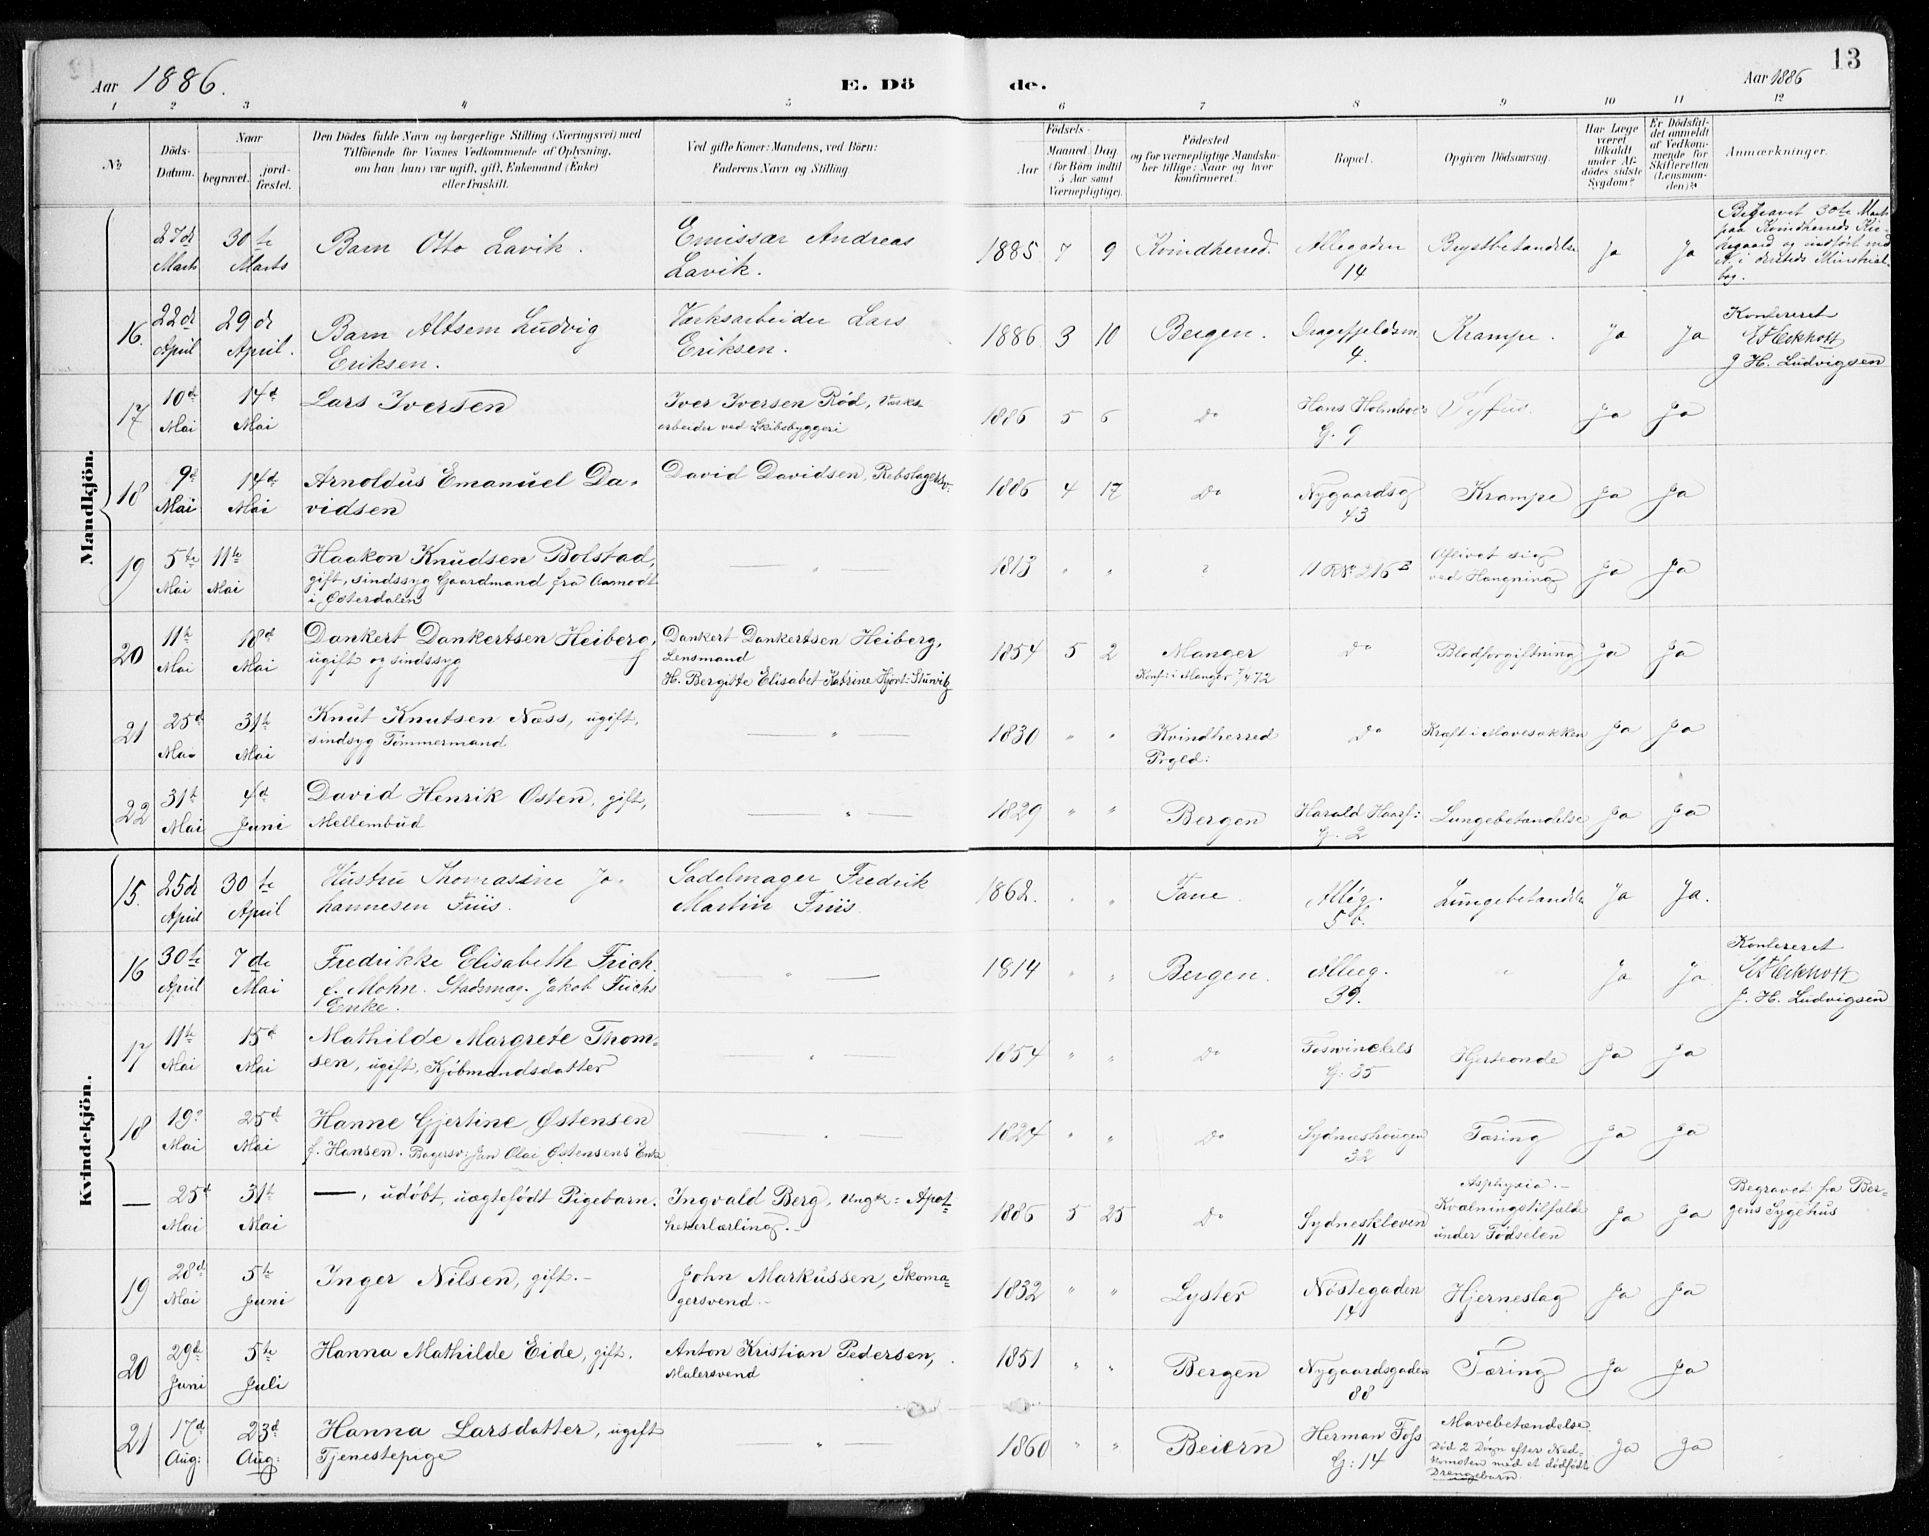 13
Aar 1886.
E. Döde.
Aar 1886
1 2 3 4 5 6 7 8 9 10 11 12
No.
Döds-Datum.
Naar
begravet.
jordfæstet.
Den Dödes fulde Navn og borgerlige Stilling (Næringsvei) med
Tilföiende for Voxnes Vedkommende af Oplysning,
om han (hun) var ugift, gift, Enkemand (Enke)
eller fraskilt.
Ved gifte Koner: Mandens, ved Börn:
Faderens Navn og Stilling.
Födsels-
Aar
Maaned. Dag.
(for Börn indtil
5 Aar samt
Værnepligtige).
Födested
og for værnepligtige Mandska-
ber tillige: Naar og hvor
konfirmeret.
Bopæl.
Opgiven Dödsaarsag.
Har Læge
været
tilkaldt
under Af-
dödes sidste
Sygdom?
Er Dödsfal-
det anmeldt
af Vedkom-
mende for
Skifteretten
(Lensman-
den)?
Anmærkninger.
Mandkjön.
27de Marts 30te Marts Barn Otto Lavik. Emissær Andreas Lavik. 1885 7 9 Kvindherred. Allegaden 14 Brystbetændelse Ja Ja Begravet 30te Marts paa Kvindherreds Kirkegaard og indført i dersteds Ministerialbog.
16. 22de April 29de April. Barn Altsem Ludvig Eriksen. Værksarbeider Lars Eriksen. 1886 3 10 Bergen. Dragefjeldsm. 4. Krampe. Ja Ja Konfereret E Eckhoff J. H. Ludvigsen
17 10d Mai 14d Mai Lars Iversen Iver Iversen Rød, Værksarbeider ved Skibsbyggeri 1886 5 6 Do Hans Holmboes G. 9 Ja Ja
18 9d Mai 14d Mai Arnoldus Emanuel Davidsen David Davidsen, Rebslagersv. 1886 4 17 Do Nygaardsg 43 Krampe Ja Ja
19 5te Mai 11te Mai Haakon Knudsen Bolstad, gift, sindssyg Gaardmand fra Aamodt i Østerdalen — " — 1813 " " ? 11 R No 216 B Aflivet sig ved Hængning Ja Ja
20 11te Mai 18d Mai Dankert Dankertsen Heiberg, ugift og sindssyg Dankert Dankertsen Heiberg, Lensmand H. Bergitte Elisabet Katrine Hjort: Stuwitz 1854 5 2 Manger Konf: i Manger 7/4 72 Do Blodforgiftning Ja Ja
21 25d Mai 31te Mai Knut Knutsen Næss, ugift, sindsyg Tømmermand — " — 1830 " " Kvindherred Prgld: Do Kræft i Mavesækken Ja Ja
22 31te Mai 4d Juni David Henrik Osten, gift, Mellembud — " — 1829 " " Bergen Harald Haarf: G. 2 Lungebetændelse Ja Ja
Kvindekjön.
15. 25de April 30te April Hustru Thomasine Johannesen Friis. Sadelmager Fredrik Martin Friis. 1862. " " Fane. Alleg. 5b. Lungebetændelse Ja Ja.
16 30te April 7de Mai Fredrikke Elisabeth Frich. f. Mohn. Stadsmæg. Jakob Frichs Enke. — " — 1814 " " Bergen. Alleg. 39. " Ja Ja. Konfereret E Eckhoff J. H. Ludvigsen
17 11te Mai 15d Mai Mathilde Margrete Thomsen, ugift, Kjøbmandsdatter — " — 1854 " " Do Foswinckels G. 35 Hjerteonde Ja Ja
18 19d Mai 25d Mai Hanne Gjertine Østensen f. Hansen. Bagersv: Jan Olai Østensens Enke — " — 1824 " " Do Sydneshougen 32 Tæring Ja Ja
— 25d Mai 31te Mai —, udøbt, uægtefødt Pigebarn. Ingvald Berg, Ungk: Apothekerlærling. — 1886 5 25 Do Sydneskleven 11 Asphyxia. — Kvælningstilfælde under Fødselen Ja Ja Begravet fra Bergens Sygehus
19 28d Mai 5te Juni Inger Nilsen, gift. — John Markussen, Skomagersvend. — 1832 " " Lyster Nøstegaden 14 Hjerneslag Ja Ja
20 29d Juni 5te Juli Hanna Mathilde Eide, gift. Anton Kristian Pedersen, Malersvend 1851 " " Bergen Nygaardsgaden 88 Tæring Ja Ja
21 17d Aug: 23d Aug: Hanna Larsdatter, ugift Tjenestepige — " — 1860 " " Beiern Herman Foss G: 14 Mavebetændelse Død 2 Døgn efter Nedkomsten med et dødfødt Drengebarn. Ja Ja